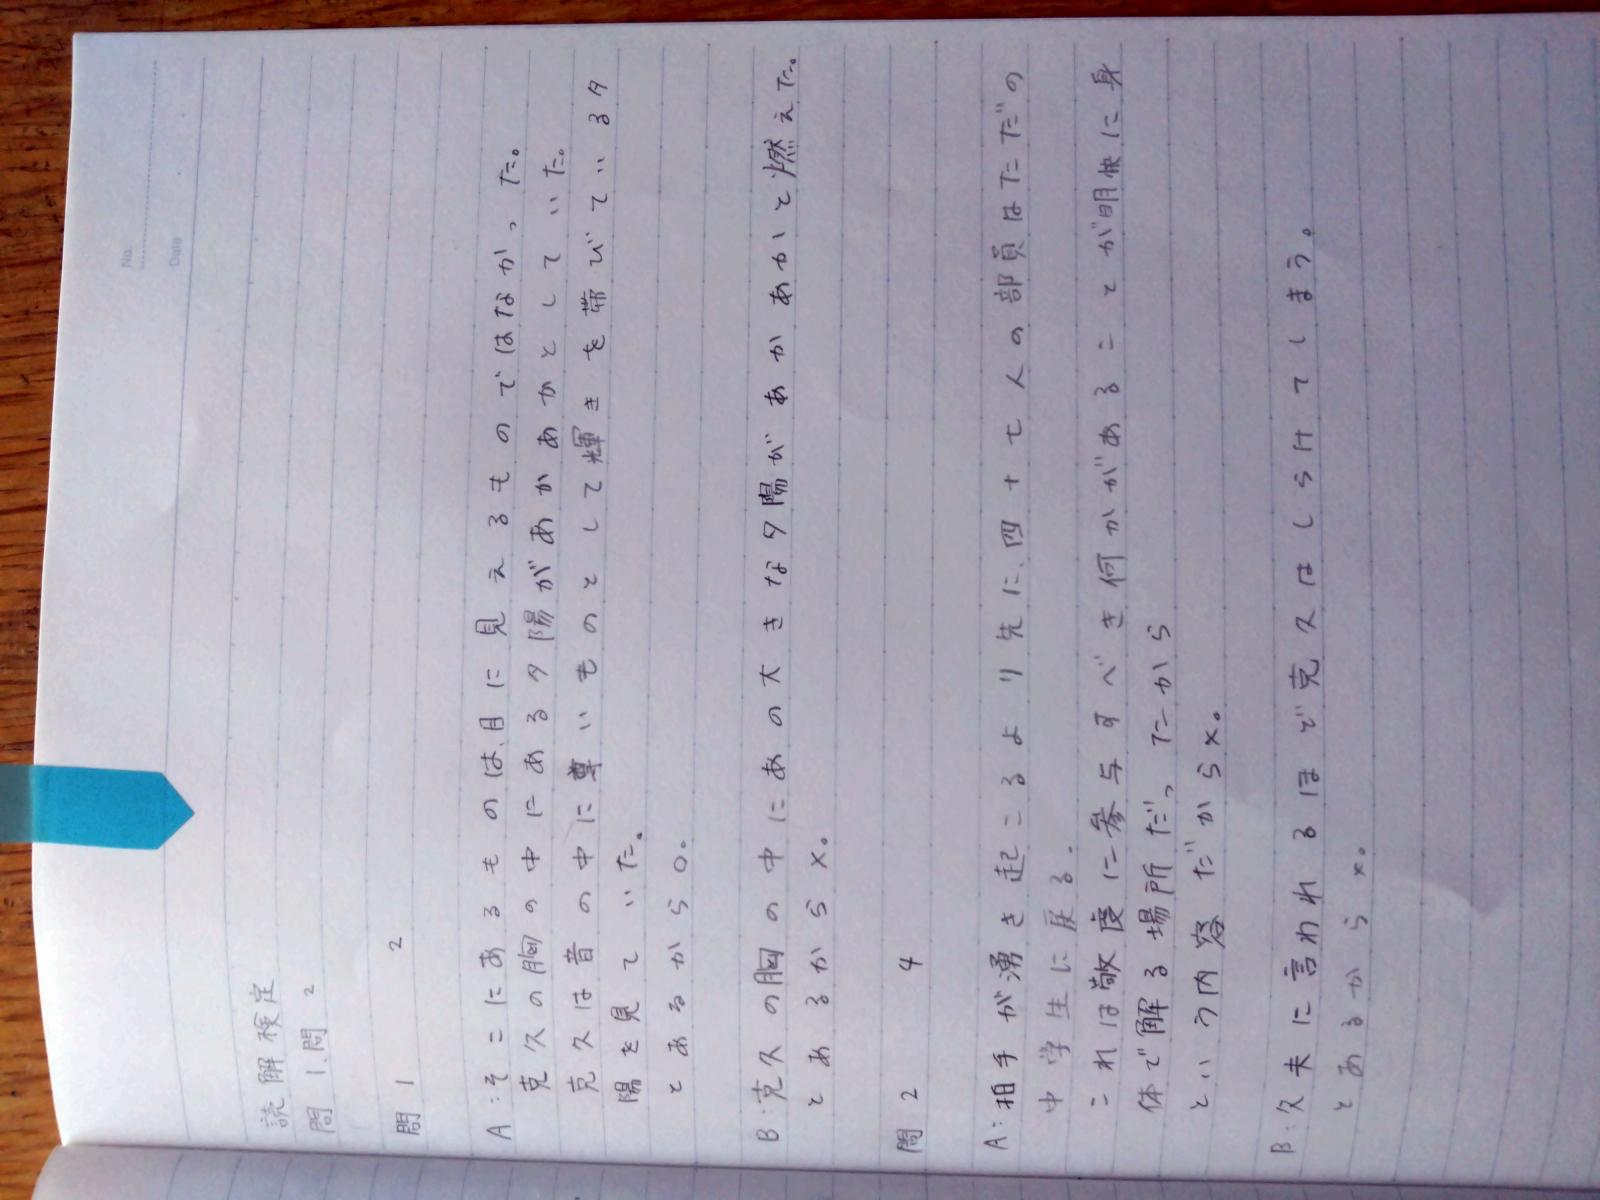 No.
Date
読解検定
問1、問2
問1 2
A:そこにあるものは、目に見えるものではなかった。
克久の胸の中にある夕陽があかあかとしていた。
克久は音の中に尊いものとして輝きを帯びている夕
陽を見ていた。
とあるから○。
B:克久の胸の中にあの大きな夕陽があかあかと燃えた。
とあるから×。
問2 4
A:拍手が湧き起こるより先に、四十七人の部員はただの
中学生に戻る。
これは敬虔に参与すべき何かがあることが明快に身
体で解る場所だった。だから
という内容だから×。
B:久夫に言われるほど克久はしらけてしまう。
とあるから×。